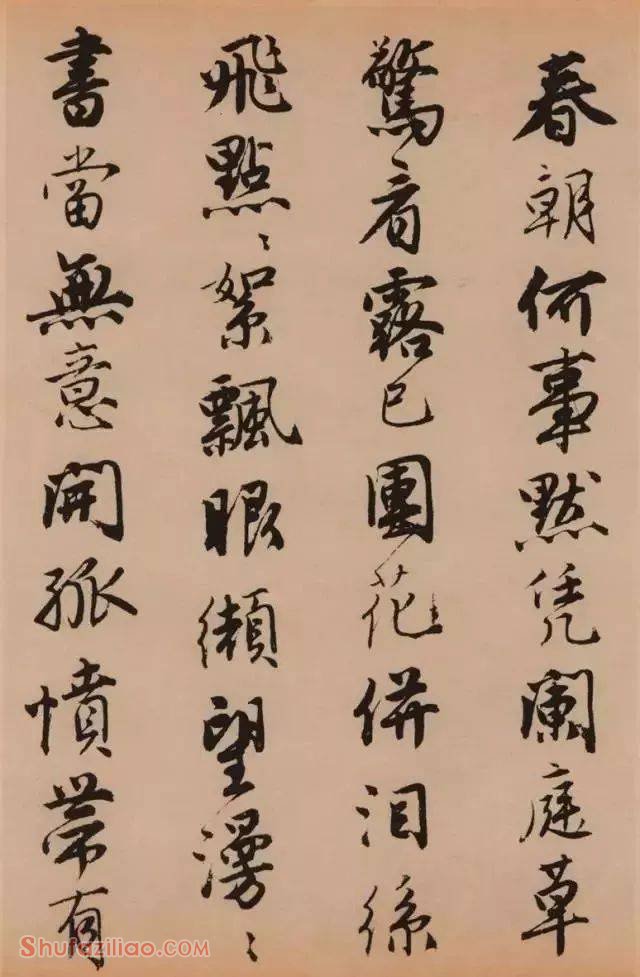 春朝何事默凭闌庭草
驚看露已團花併泪絲
飛點〻絮飄眼纈望漫〻
書當無意開孤憤帶有
Shufaziliao.com